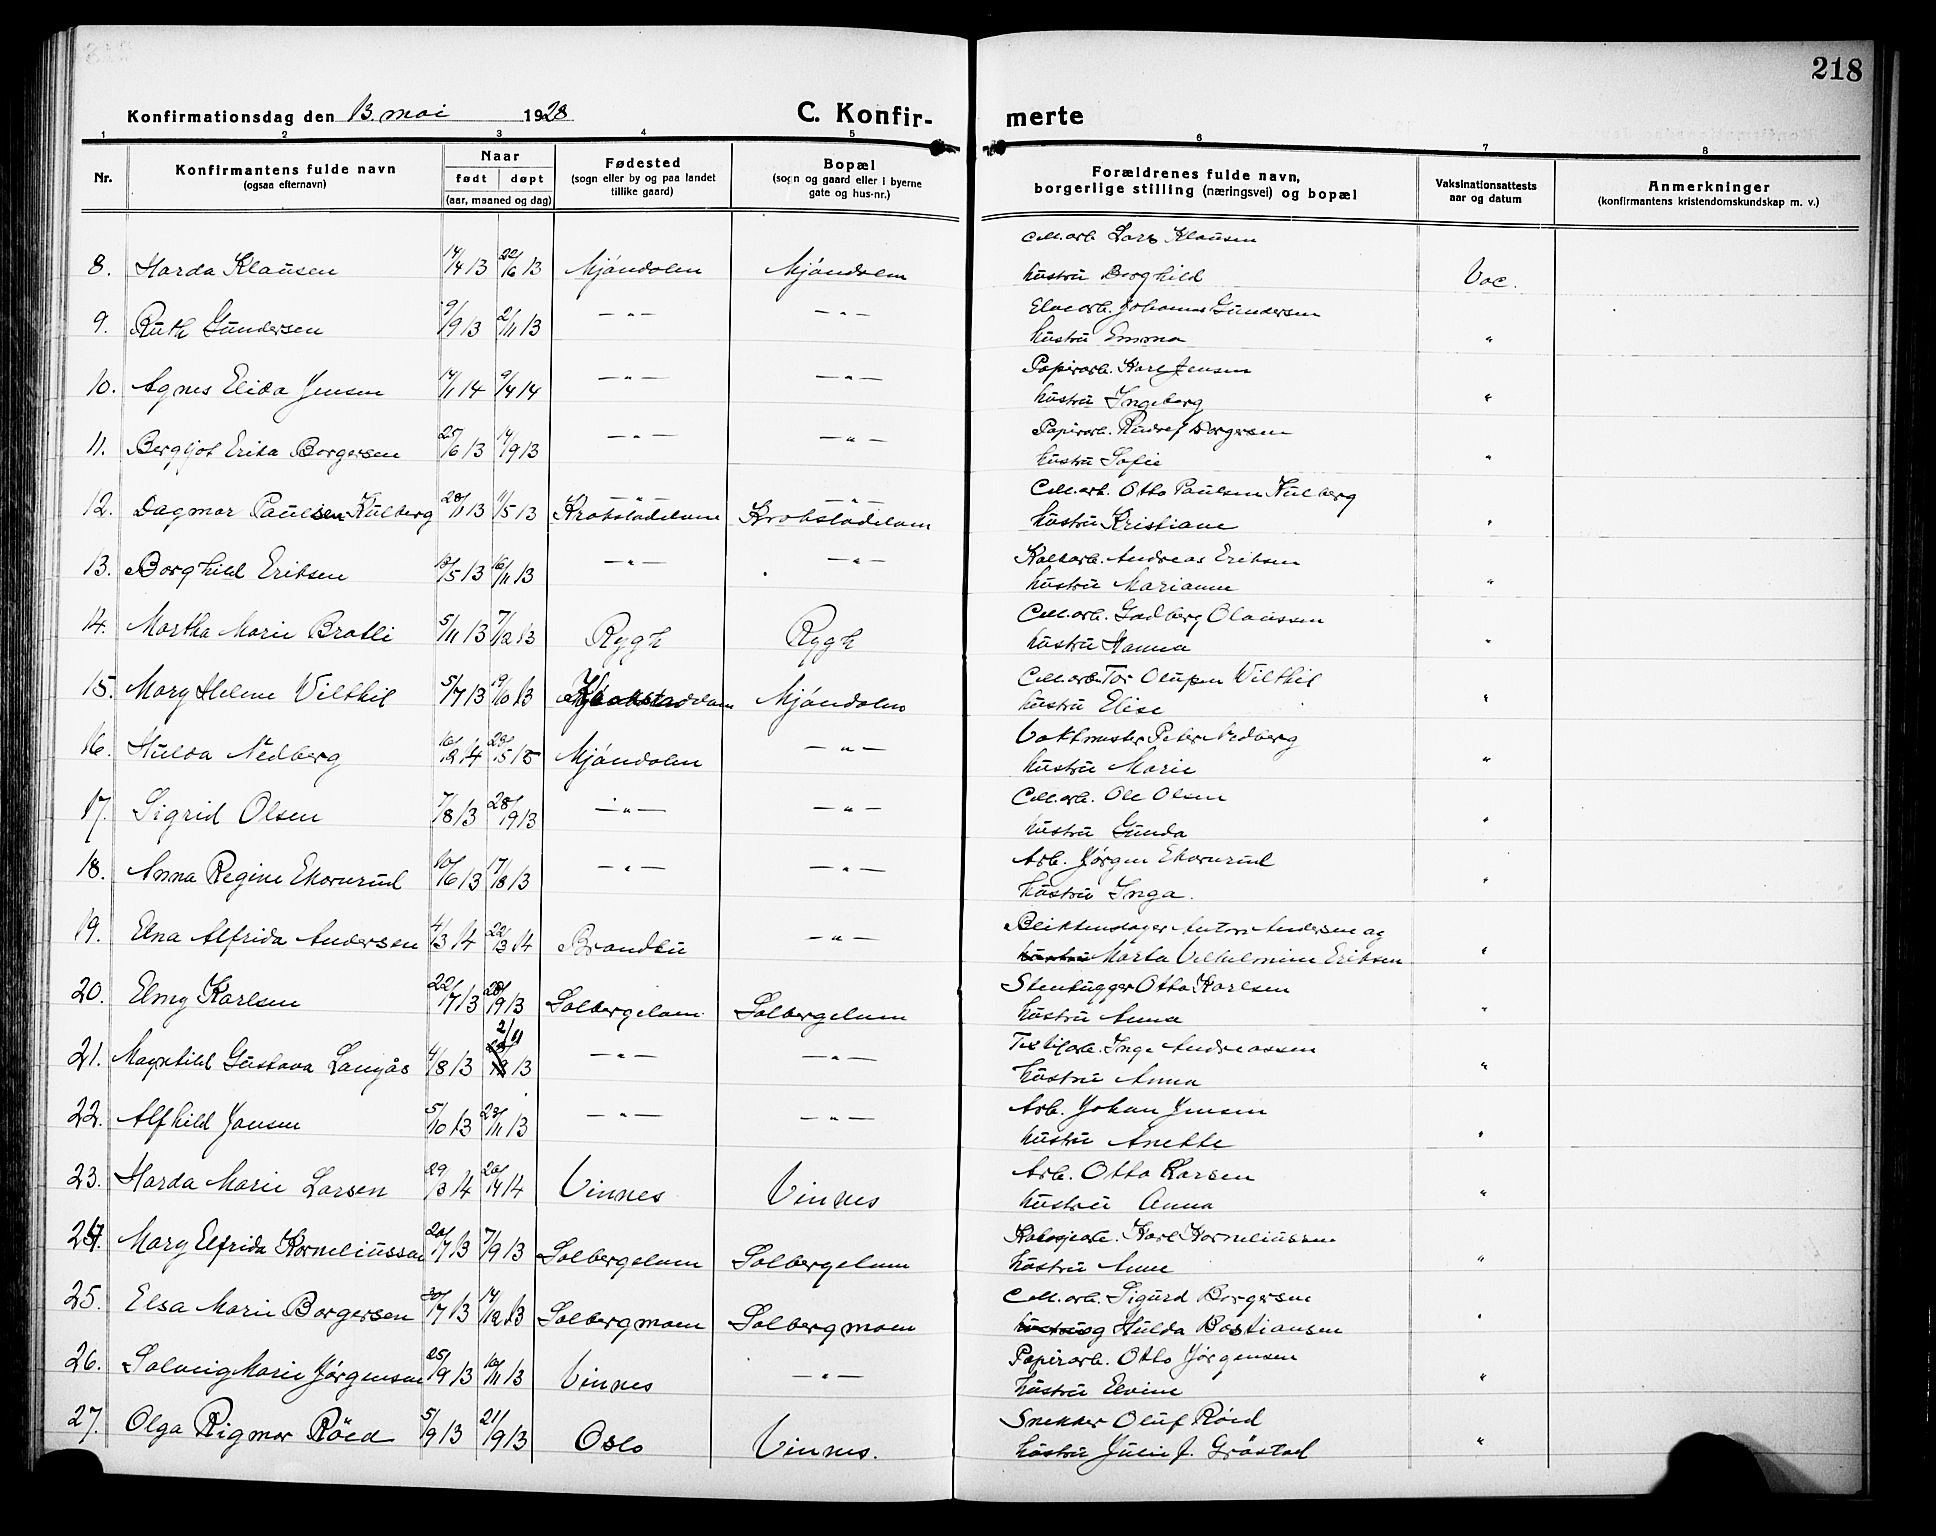 218
Konfirmationsdag den 13. mai 1928
C. Konfir-
merte
1 2 3 4 5 6 7 8
Nr.
Konfirmantens fulde navn
(ogsaa efternavn)
Naar
født døpt
(aar, maaned og dag)
Fødested
(sogn eller by og paa landet
tillike gaard)
Bopæl
(sogn og gaard eller i byerne
gate og hus-nr.)
Forældrenes fulde navn,
borgerlige stilling (næringsvei) og bopæl
Vaksinationsattests
aar og datum
Anmerkninger
(konfirmantens kristendomskundskap m. v.)
Cell.arb. Lars Klausen
8. Harda Klausen 14/4 13 22/6 13 Mjøndalen Mjøndalen hustru Borghild Vac.
Elvearb. Johannes Gundersen
9. Ruth Gundersen 9/9 13 2/11 13 —"— —"— hustru Emma "
Papirarb. Karl Jensen
10. Agnes Elida Jensen 14/1 14 9/4 14 —"— —"— hustru Ingeborg "
Papirarb. Borgersen
11. Bergljot Erika Borgersen 25/6 13 14/9 13 —"— —"— hustru Sofie "
Cell.arb. Otto Paulsen Kulberg
12. Dagmar Paulsen Kulberg 20/1 13 1/5 13 —"— Krokstadelven —"— Krokstadelven hustru Kristiane "
Kalkarb. Andreas Eriksen
13. Borghild Eriksen 18/5 13 16/11 13 —"— —"— hustru Marianne "
Cell.arb. Gudberg Olaussen
14. Martha Marie Bratli 5/11 13 7/12 13 Rygh Rygh hustru Hanna "
Cell.arb. Tor Olupsen Vilthil
15. Mary Helene Vilthil 5/7 13 19/10 13 Mjøndalen hustru Elise "
Vaktmester Peter Nedberg
16. Hulda Nedberg 23/5 15 Mjøndalen —"— hustru Marie "
Cell.arb. Ole Olsen
17. Sigrid Olsen 7/8 13 28/9 13 —"— —"— hustru Gunda "
Arb. Jørgen Ekornrud
18. Anna Regine Ekornrud 10/6 13 17/8 13 —"— —"— hustru Inga. "
Blikkenslager Anton Andersen og
19. Edna Alfrida Andersen 4/3 14 22/3 14 Brandbu —"— hustru Marta Vilhelmine Eriksen "
Stenhugger Otto Karlsen
20. Elmy Karlsen 22/7 13 28/9 13 Solbergelven Solbergelven hustru Anna "
Textilarb. Inge Andreassen
21. Magnhild Gustava Langås 4/8 13 2/11 13 —"— —"— hustru Anna "
Arb. Johan Jensen
22. Alfhild Jensen 5/10 13 23/11 13 —"— —"— hustru Anette "
Arb. Otto Larsen
23. Harda Marie Larsen 29/3 14 Vinnes Vinnes hustru Anna "
Karl Korneliussen
24. Mary Elfrida Korneliussen 20/7 13 7/9 13 Solbergelven Solbergelven hustru Anne "
Cell.arb. Sigurd Borgersen
25. Elsa Marie Borgersen 30/7 13 14/12 13 Solbergmoen Solbergmoen og Hulda Bastiansen "
Papirarb. Otto Jørgensen
26. Solveig Marie Jørgensen 25/9 13 16/11 13 Vinnes —"— hustru Elvine "
Snekker Oluf Røed
27. Olga Rigmor Røed 5/9 13 21/9 13 Oslo Vinnes. hustru Julie J. Grøstad "